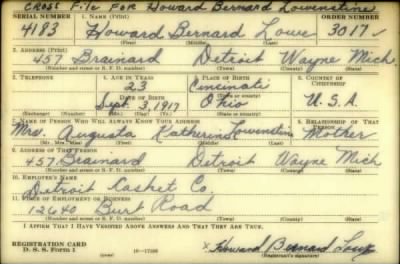 CROSS File FOR Howard Bernard Lowenstine
SERIAL NUMBER 1. NAME (Print) ORDER NUMBER
4183 Howard Bernard Lowe 3017
(First) (Middle) (Last)
2. ADDRESS (Print)
457 Brainard Detroit Wayne Mich.
(Number and street or R. F. D. number) (Town) (County) (State)
3. TELEPHONE 4. AGE IN YEARS 5. PLACE OF BIRTH 6. COUNTRY OF CITIZENSHIP
23 Cincinati
DATE OF BIRTH (Town or county)
Sept. 3, 1917 Ohio U.S.A.
(Exchange) (Number) (Mo.) (Day) (Yr.) (State or country)
7. NAME OF PERSON WHO WILL ALWAYS KNOW YOUR ADDRESS 8. RELATIONSHIP OF THAT PERSON
Mrs. Augusta Katherine Lowenstein Mother
(Mr., Mrs., Miss) (First) (Middle) (Last)
9. ADDRESS OF THAT PERSON
457 Brainard Detroit Wayne Mich
(Number and street or R. F. D. number) (Town) (County) (State)
10. EMPLOYER'S NAME
Detroit Casket Co.
11. PLACE OF EMPLOYMENT OR BUSINESS
12640 Burt Road
(Number and street or R. F. D. number) (Town) (County) (State)
I AFFIRM THAT I HAVE VERIFIED ABOVE ANSWERS AND THAT THEY ARE TRUE.
REGISTRATION CARD
D. S. S. Form 1 (over) 16-17105 x Howard Bernard Lowe
(Registrant's signature)